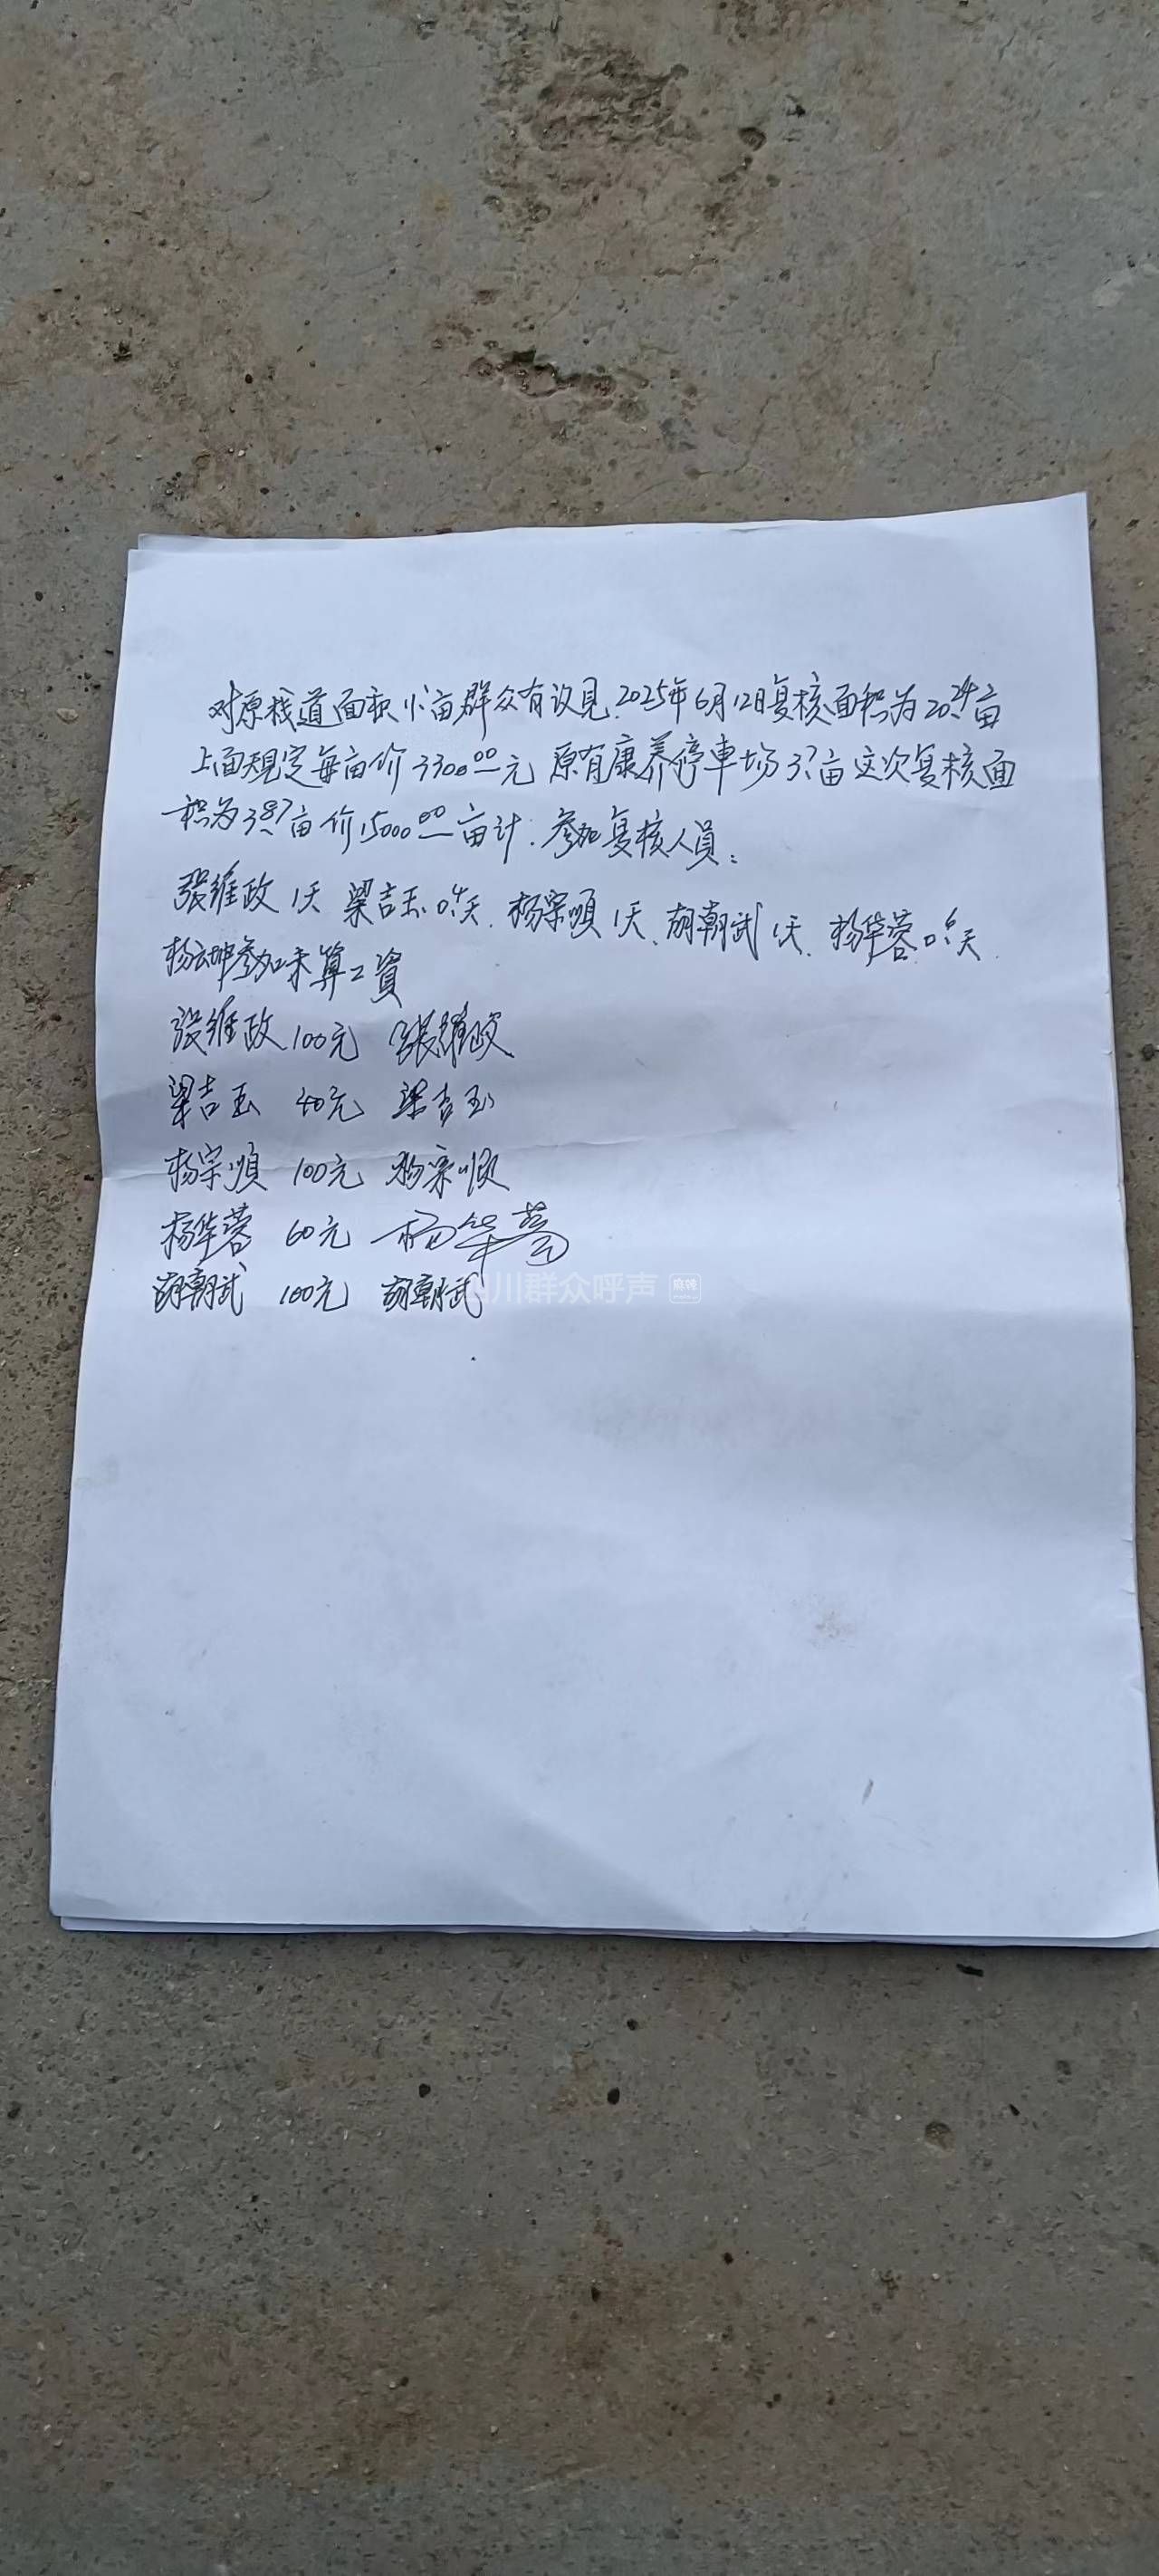 对原栈道面积小亩群众有议见.2025年6月12日复核面积为20.24亩
上面规定每亩价3300.00元 原有康养停車场3.?亩这次复核面
积为3.87亩价15000.00亩计.参加复核人員:
張维政1天 梁吉玉0.4天.杨宗順1天、胡朝武1天.杨华蓉0.6天.
杨云坤参加未算工資
張维政 100元 張维政
梁吉玉 40元 梁吉玉
杨宗順 100元 杨宗順
杨华蓉 60元 杨华蓉
胡朝武 100元 胡朝武
川群众呼声 麻辣